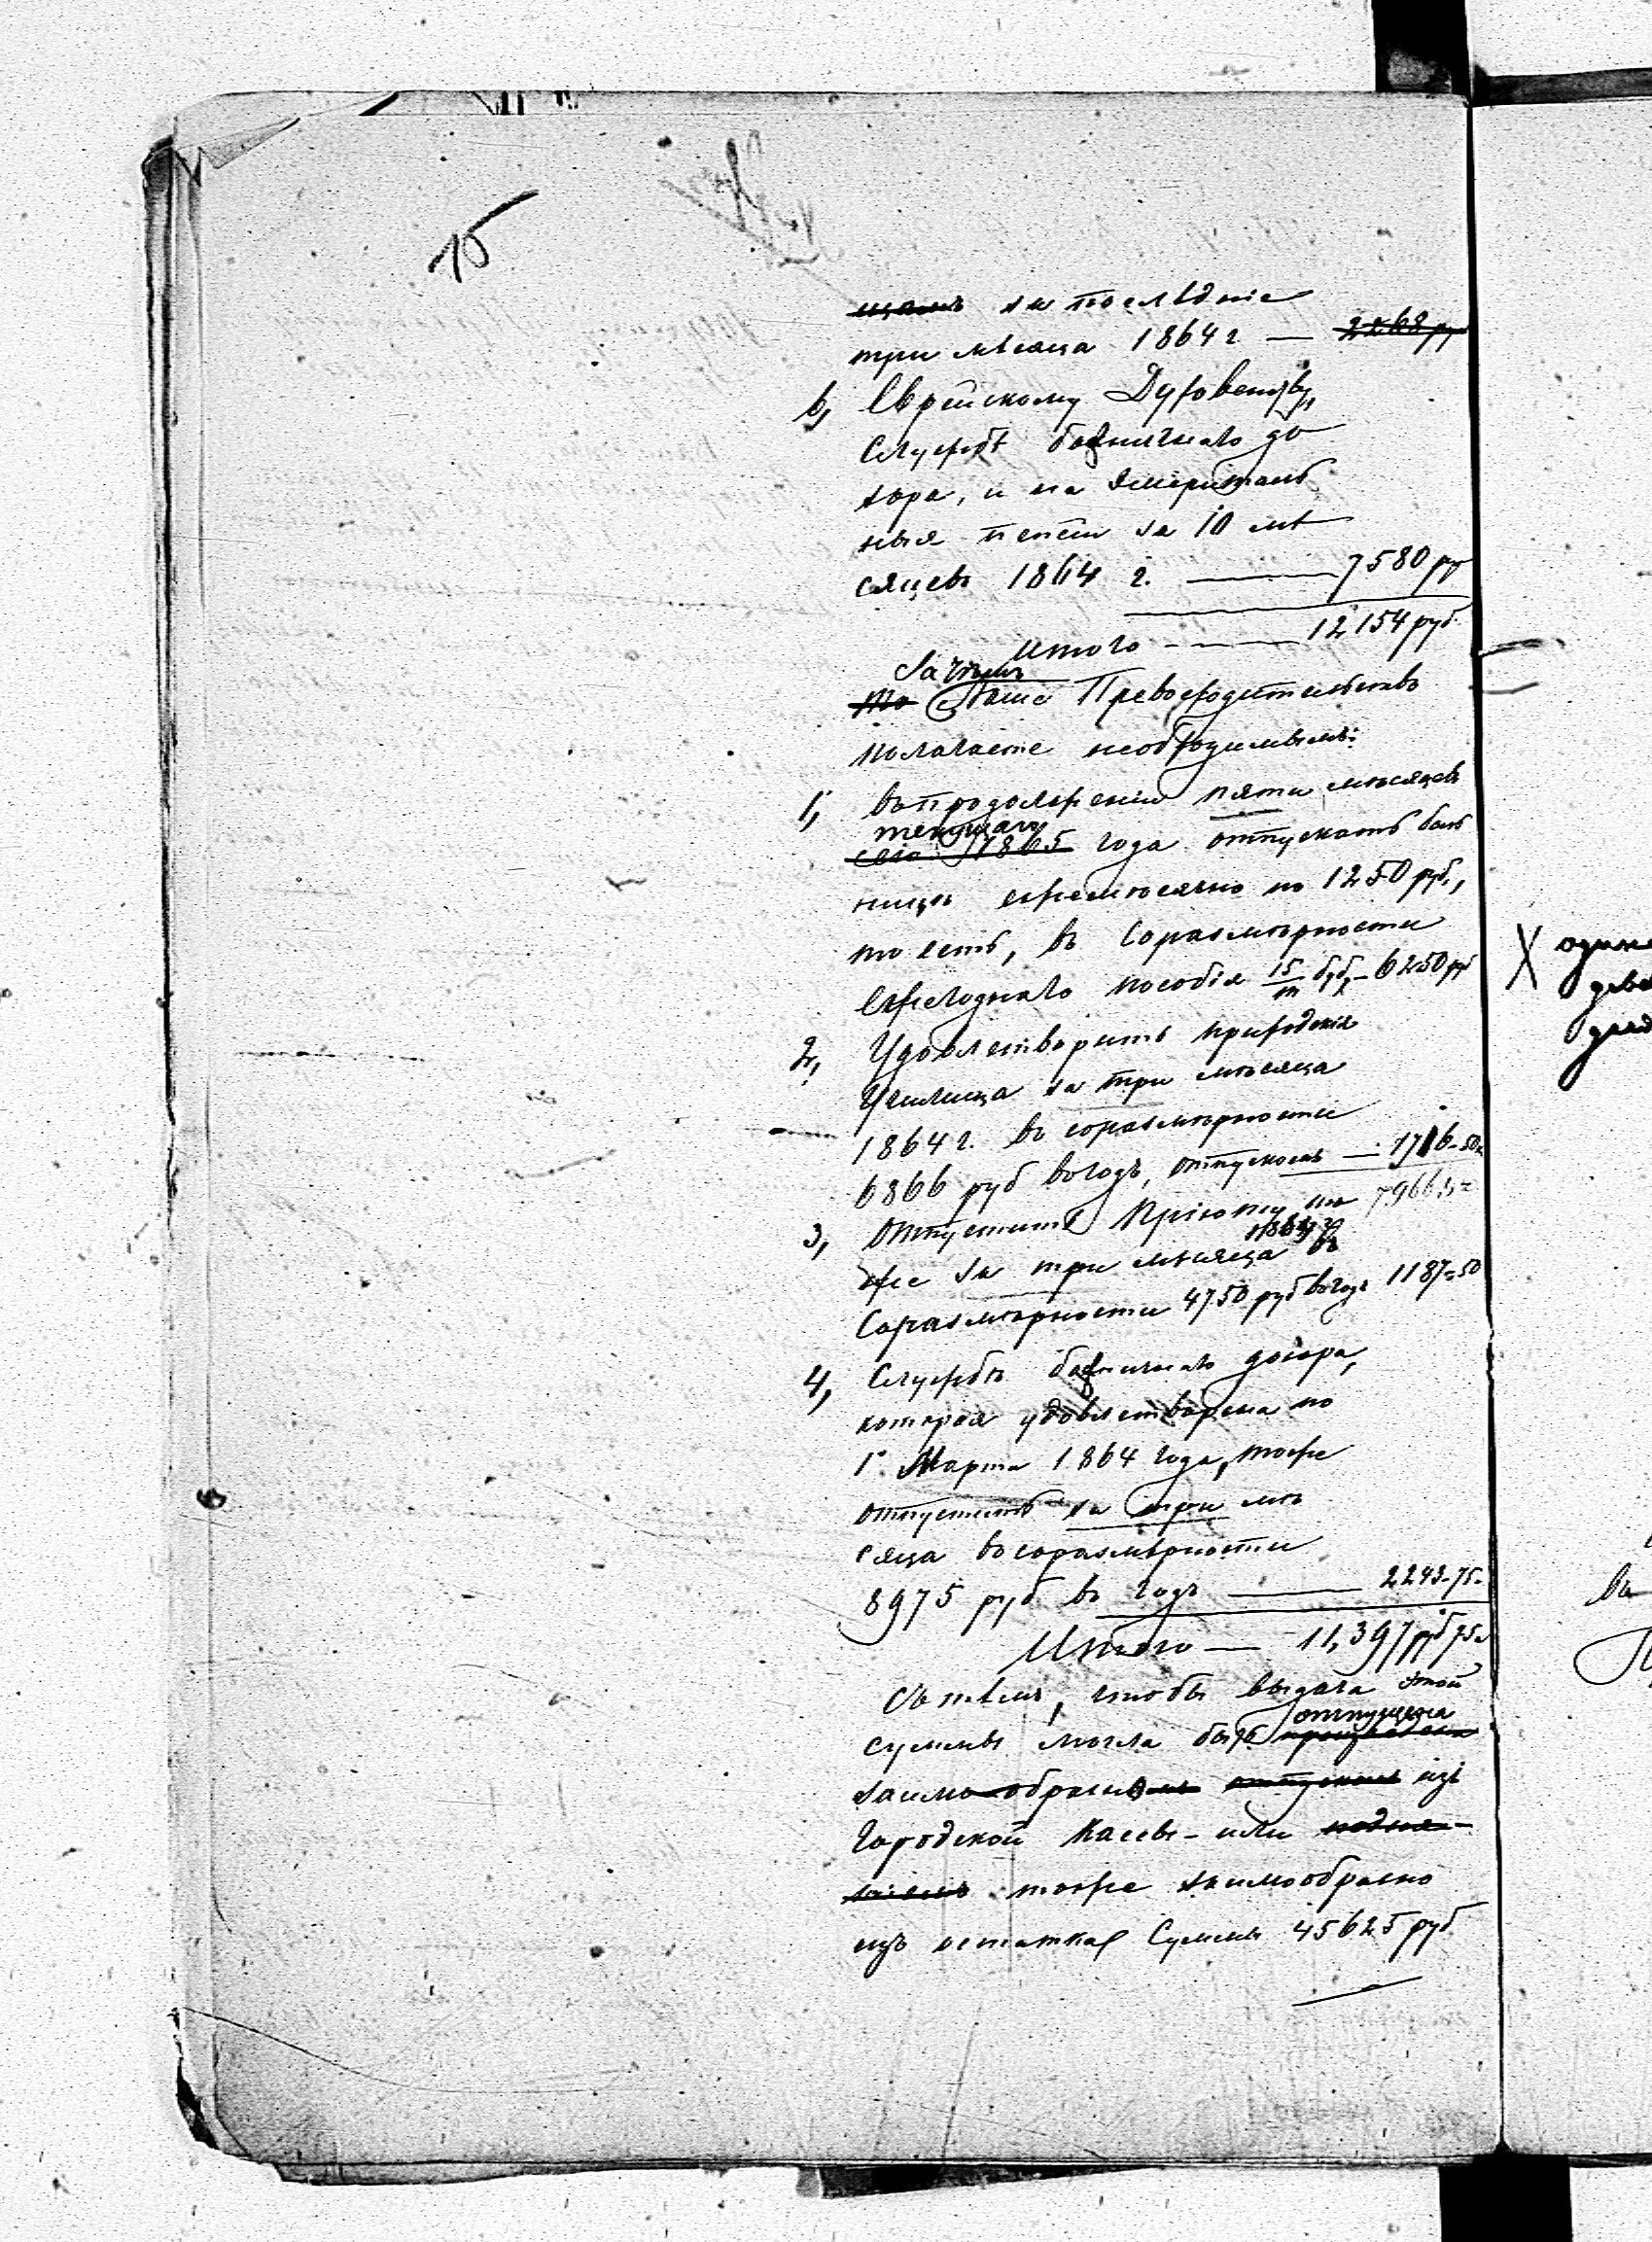 15
щамъ за послѣдніе
три мѣсяца 1864 г — 2268 ру
б, Еврейскому Духовенству,
Службѣ богничнаго до
зора, и на Эмериталь
ныя пенсіи за 10 мѣ
сяцевъ 1864 г. — 7580 ру
Итого - — 12154 руб
За тѣмъ
то Ваше Превосходительство
полагаете необходимымъ:
1, въ продолженіи пяти мѣсяцевъ
текущаго
сего 1865 года отпускать боль
ницѣ ежемѣсячно по 1250 руб.,
то есть, въ соразмѣрности
ежегоднаго пособія 15/т руб. - 6250 руб
2, Удовлетворить приходскія
Училища за три мѣсяца
1864 г. въ соразмѣрности
6866 руб въ годъ, отпускомъ — 1716-50к
7966.50
3, Отпустить Пріюту
1864 г
же за три мѣсяца въ
соразмѣрности 4750 руб въ годъ 1187=50
4, Службѣ богничнаго дозора,
которая удовлетворена по
1е Марта 1864 года, тоже
отпустить за три мѣ
сяца въ соразмѣрности
8975 руб въ годъ — 2243-75-
Итого — 11,397 руб 75к
съ тѣмъ, чтобы выдача этой
отпущена
суммы могла быть произведена
заимо-образномъ отпускомъ изъ
Городской Кассы - или
тоже заимообразно
изъ остатка Суммы 45625 руб
X